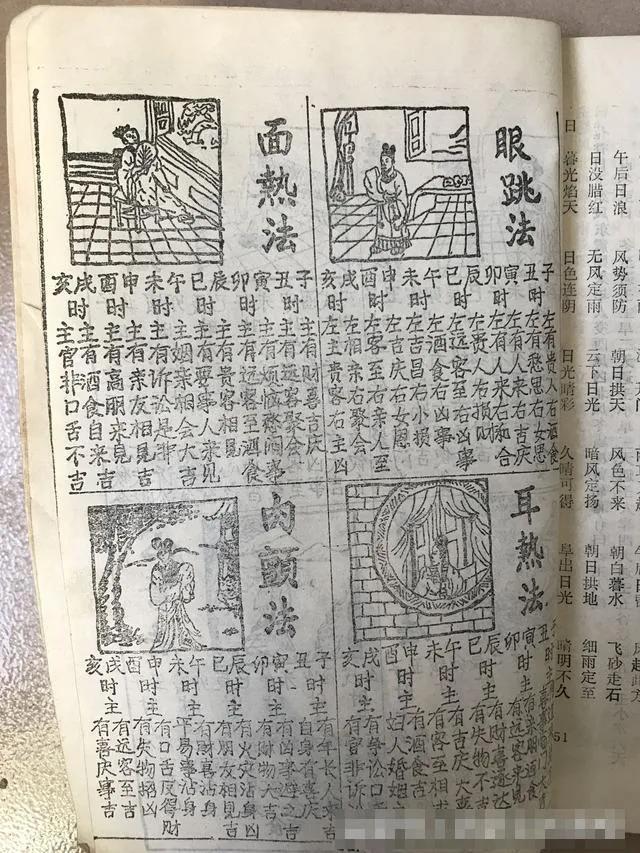 眼跳法
子时左有贵人右酒食
丑时左有愁思右女思
寅时左有人来右吉庆
卯时左有人来右和合
辰时左贵人右损财
巳时左远客至右凶事
午时左酒食右凶事
未时左吉昌右小损
申时左吉庆右女恩
酉时左客至右亲人至
戌时左相亲右聚会
亥时左主贵客右主凶
面热法
子时主有财喜吉庆
丑时主有远客聚会
寅时主有烦恼愁闷事
卯时主有远客至酒食
辰时主有贵客相见
巳时主有要事人来见
午时主姻亲相会大吉
未时主有诉讼是非
申时主有亲友相见吉
酉时主有高朋来见
戌时主有酒食自来吉
亥时主官非口舌不吉
耳热法
有远客来见
有财喜通达
有失物不吉
有吉庆大
有客至相
有酒食吉
妇人婚姻
有争讼口
有官非诉讼
肉頭法
子时主有年长人来吉
丑时主自身有喜庆
寅时主有凶事避之吉
卯时主有财物大吉
辰时主有火灾沾身凶
巳时主有朋友相见吉
午时主有财喜沾身
未时主平易事沾身
申时主有口舌反得财
酉时主有失物招凶
戌时主有远客至吉
亥时主有喜庆事吉
午后日浪 风势须防 朝日拱天 风色不来 朝白暮水 飞砂走石
日没腊红 无风定雨 云下日光 暗风定扬 朝日拱地 细雨定至
日 暮光焰天 日色连阴 日光晴彩 久晴可得 早出日光 晴明不久
51